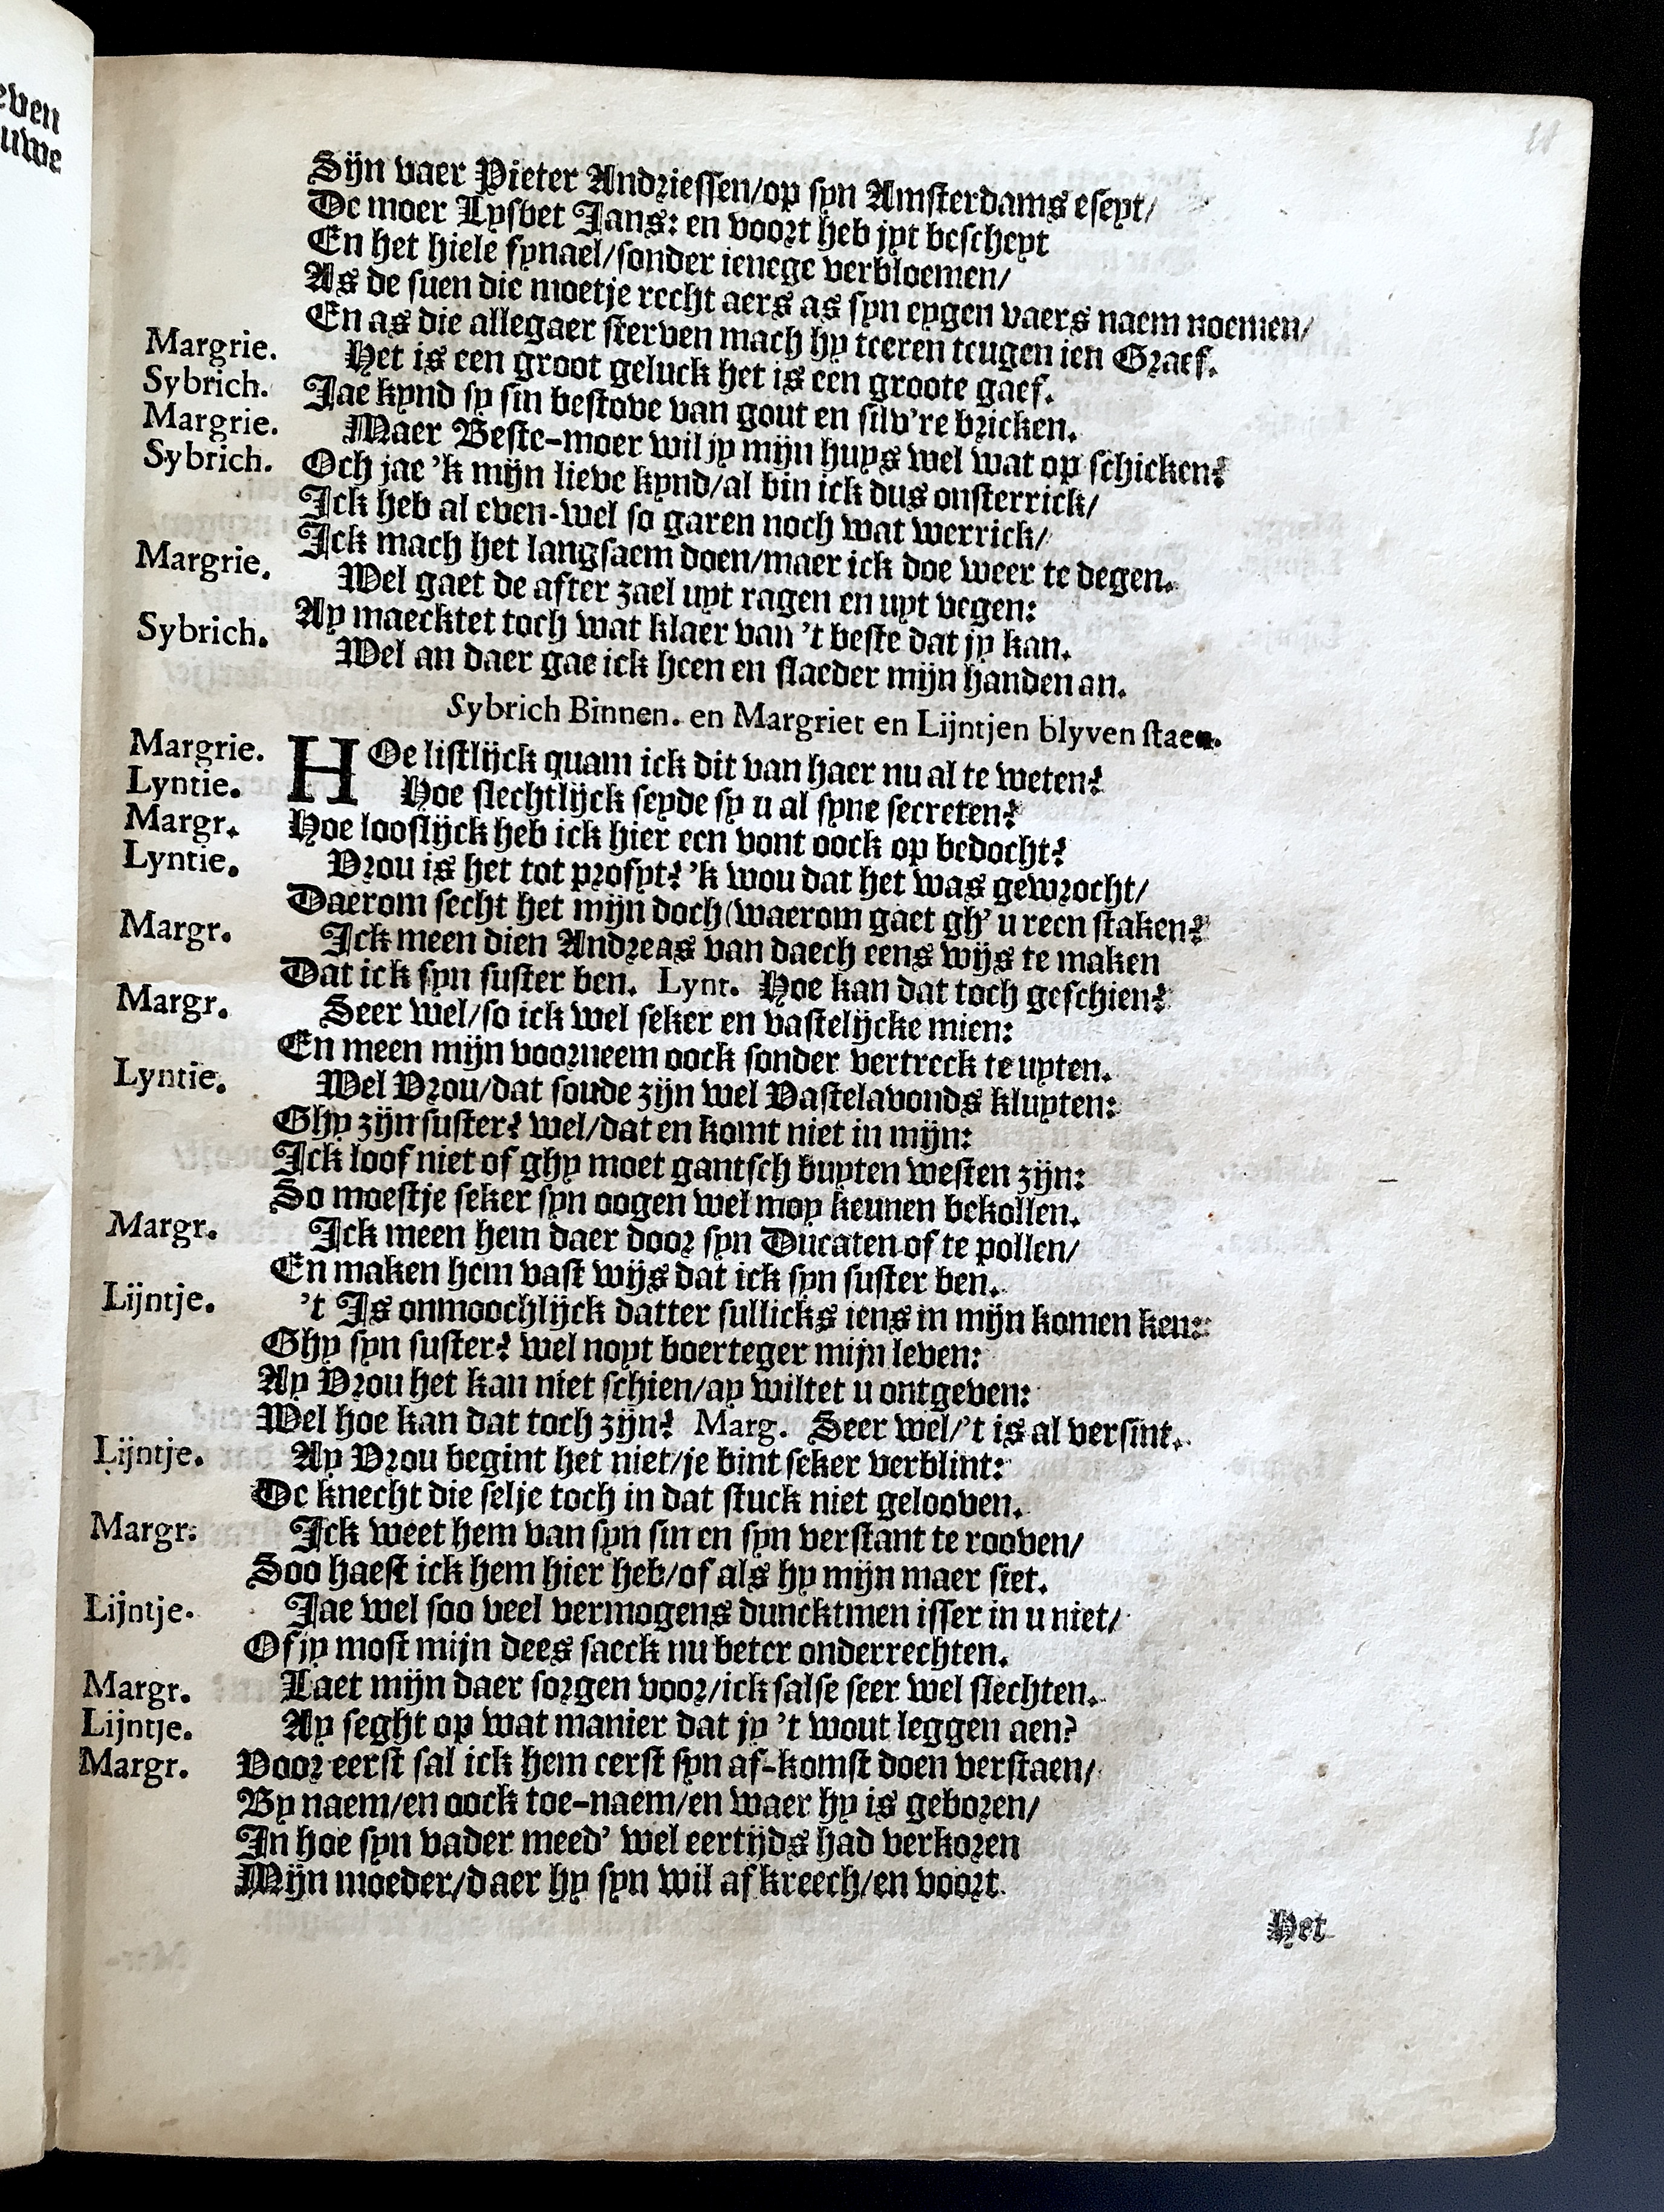 even
uwe
18
Sijn vaer Pieter Andriessen/op syn Amsterdams eseyt/
De moer Lysbet Jans: en voort heb jyt bescheyt
En het hiele fynael/sonder ienege verbloemen/
As de suen die moetje recht aers as syn eygen vaers naem noemen/
En as die allegaer sterven mach hy teeren teugen ien Graef.
Margrie. Het is een groot geluck het is een groote gaef.
Sybrich. Jae kynd sy sin bestove van gout en silv're bricken.
Margrie. Maer Beste-moer wil jy mijn huys wel wat op schicken?
Sybrich. Och jae 'k mijn lieve kynd/al bin ick dus onsterrick/
Ick heb al even-wel so garen noch wat werrick/
Ick mach het langsaem doen/maer ick doe weer te degen.
Margrie. Wel gaet de after zael uyt ragen en uyt vegen:
Ay maecktet toch wat klaer van 't beste dat jy kan.
Sybrich. Wel an daer gae ick heen en slaeder mijn handen an.
Sybrich Binnen. en Margriet en Lijntjen blyven staen.
Margrie. HOe listlijck quam ick dit van haer nu al te weten?
Lyntie. Hoe slechtlijck seyde sy u al syne secreten?
Margr. Hoe looslijck heb ick hier een vont oock op bedocht?
Lyntie. Vrou is het tot profyt? 'k wou dat het was gewrocht/
Daerom secht het mijn doch(waerom gaet gh' u reen staken?
Margr. Ick meen dien Andreas van daech eens wijs te maken
Dat ick syn suster ben. Lynt. Hoe kan dat toch geschien?
Margr. Seer wel/so ick wel seker en vastelijcke mien:
En meen mijn voorneem oock sonder vertreck te uyten.
Lyntie. Wel Vrou/dat soude zijn wel Vastelavonds kluyten:
Ghy zijn suster? wel/dat en komt niet in mijn:
Ick loof niet of ghy moet gantsch buyten westen zijn:
So moestje seker syn oogen wel moy keunen bekollen.
Margr. Ick meen hem daer door syn Ducaten of te pollen/
En maken hem vast wijs dat ick syn suster ben.
Lijntje. 't Is onmoochlijck datter sullicks iens in mijn komen ken:
Ghy syn suster? wel noyt boerteger mijn leven:
Ay Vrou het kan niet schien/ay wiltet u ontgeven:
Wel hoe kan dat toch zijn? Marg. Seer wel/'t is al versint.
Lijntje. Ay Vrou begint het niet/je bint seker verblint:
De knecht die selje toch in dat stuck niet gelooven.
Margr. Ick weet hem van syn sin en syn verstant te rooven/
Soo haest ick hem hier heb/of als hy mijn maer siet.
Lijntje. Jae wel soo veel vermogens duncktmen isser in u niet/
Of jy most mijn dees saeck nu beter onderrechten.
Margr. Laet mijn daer sorgen voor/ick salse seer wel slechten.
Lijntje. Ay seght op wat manier dat jy 't wout leggen aen?
Margr. Voor eerst sal ick hem eerst syn af-komst doen verstaen/
By naem/en oock toe-naem/en waer hy is geboren/
In hoe syn vader meed' wel eertijds had verkoren
Mijn moeder/daer hy syn wil af kreech/en voort
Het